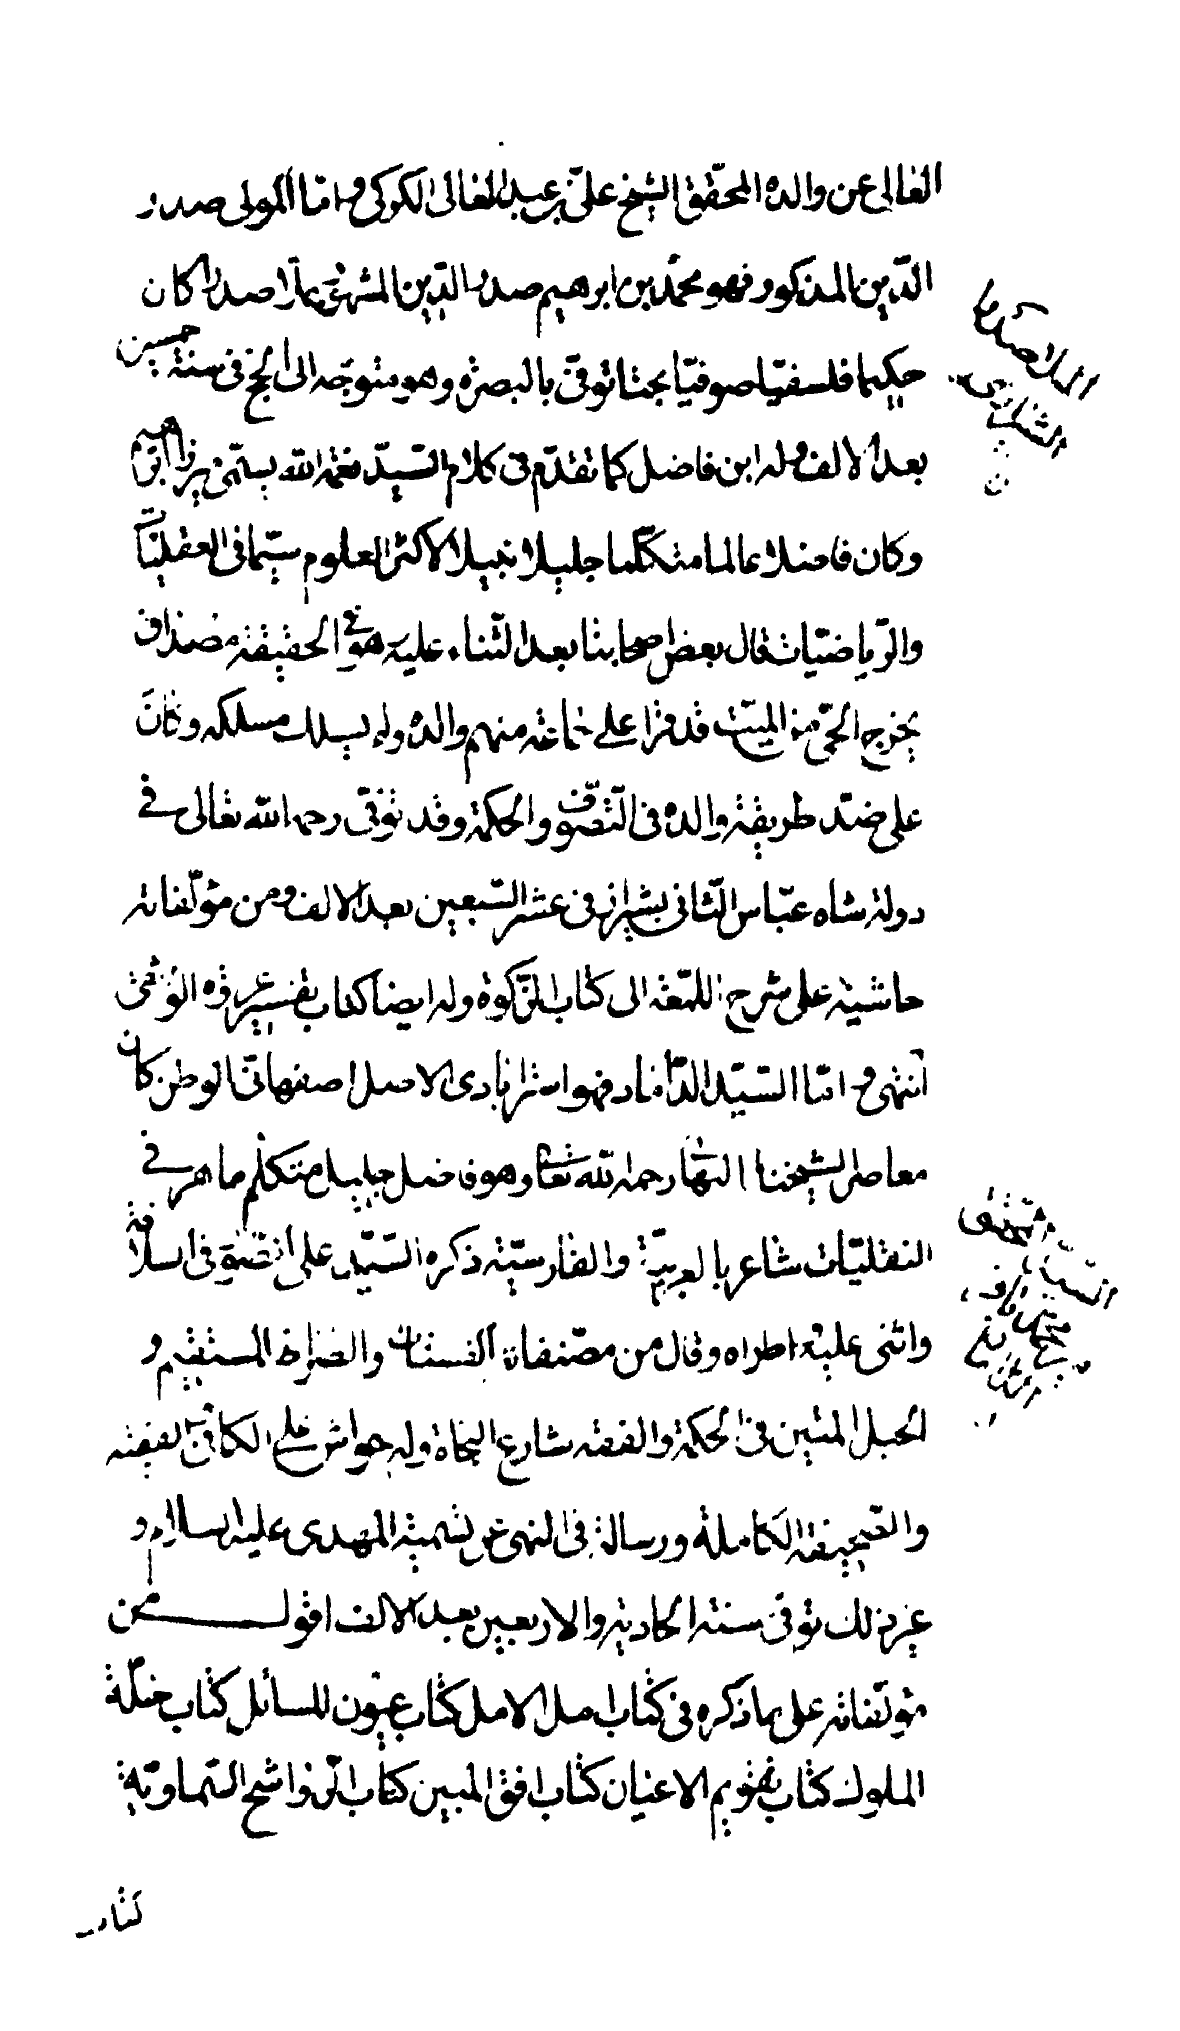 العالى عن والده المحقق الشيخ علي بن عبد العالى الكركى واما المولى صدر
الدّين المذكور فهو محمّد بن ابرهيم صدر الدّين المشهور بملا صدرا كان
حكيما فلسفيّا صوفيّا بحتا توفّى بالبصرة وهو متوجّه الى الحج فى سنة خمسين
بعد الالف وله ابن فاضل كما تقدّم فى كلام السّيد نعمة الله يسمّى ميرزا ابرهيم
وكان فاضلا عالما متكلّما جليلا نبيلا لاكثر العلوم سيّما فى العقليّات
والرّياضيّات قال بعض اصحابنا بعد الثّناء عليه هو فى الحقيقة مصداق
يخرج الحىّ من الميّت قد قرا على جماعة منهم والده ولم يسلك مسلكه وكان
على ضدّ طريقة والده فى التّصوّف والحكمة وقد توفّى رحمه الله تعالى فى
دولة شاه عبّاس الثّانى بشيراز فى عشر السّبعين بعد الالف ومن مؤلّفاته
حاشية على شرح اللمعة الى كتاب الزّكوة وله ايضا كتاب تفسير عروة الوثقى
انتهى واما السّيّد الدّاماد فهو استرابادى الاصل اصفهانىّ الوطن كان
معاصر الشيخنا البهائى رحمه الله تعالى وهو فاضل جليل متكلّم ماهر فى
النقليّات شاعر بالعربيّة والفارسيّة ذكره السّيّد على فى السلافة
واثنى عليه اطراه وقال من مصنفاته القبسات والصراط المستقيم و
الحبل المتين فى الحكمة والفقه شارع النجاة وله حواش على الكافى الفقيه
والصّحيفة الكاملة ورسالة فى النهى عن تسمية المهدى عليه السلام و
غير ذلك توفّى سنة الحادية والاربعين بعد الالف اقول من
مؤلّفاته على ما ذكره فى كتاب امل الامل كتاب عيون المسائل كتاب خلسة
الملكوت كتاب تقويم الايمان كتاب افق المبين كتاب الرّواشح السّماويّة
كتاب
الملا صدرا
الشيرازى
السيد
محمد باقر